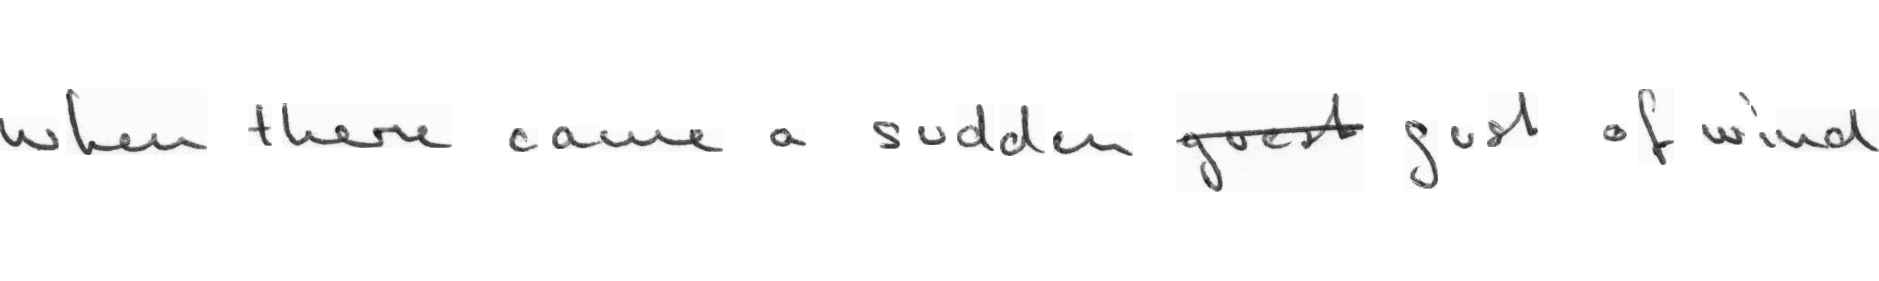 when there came a sudden guest gust of wind